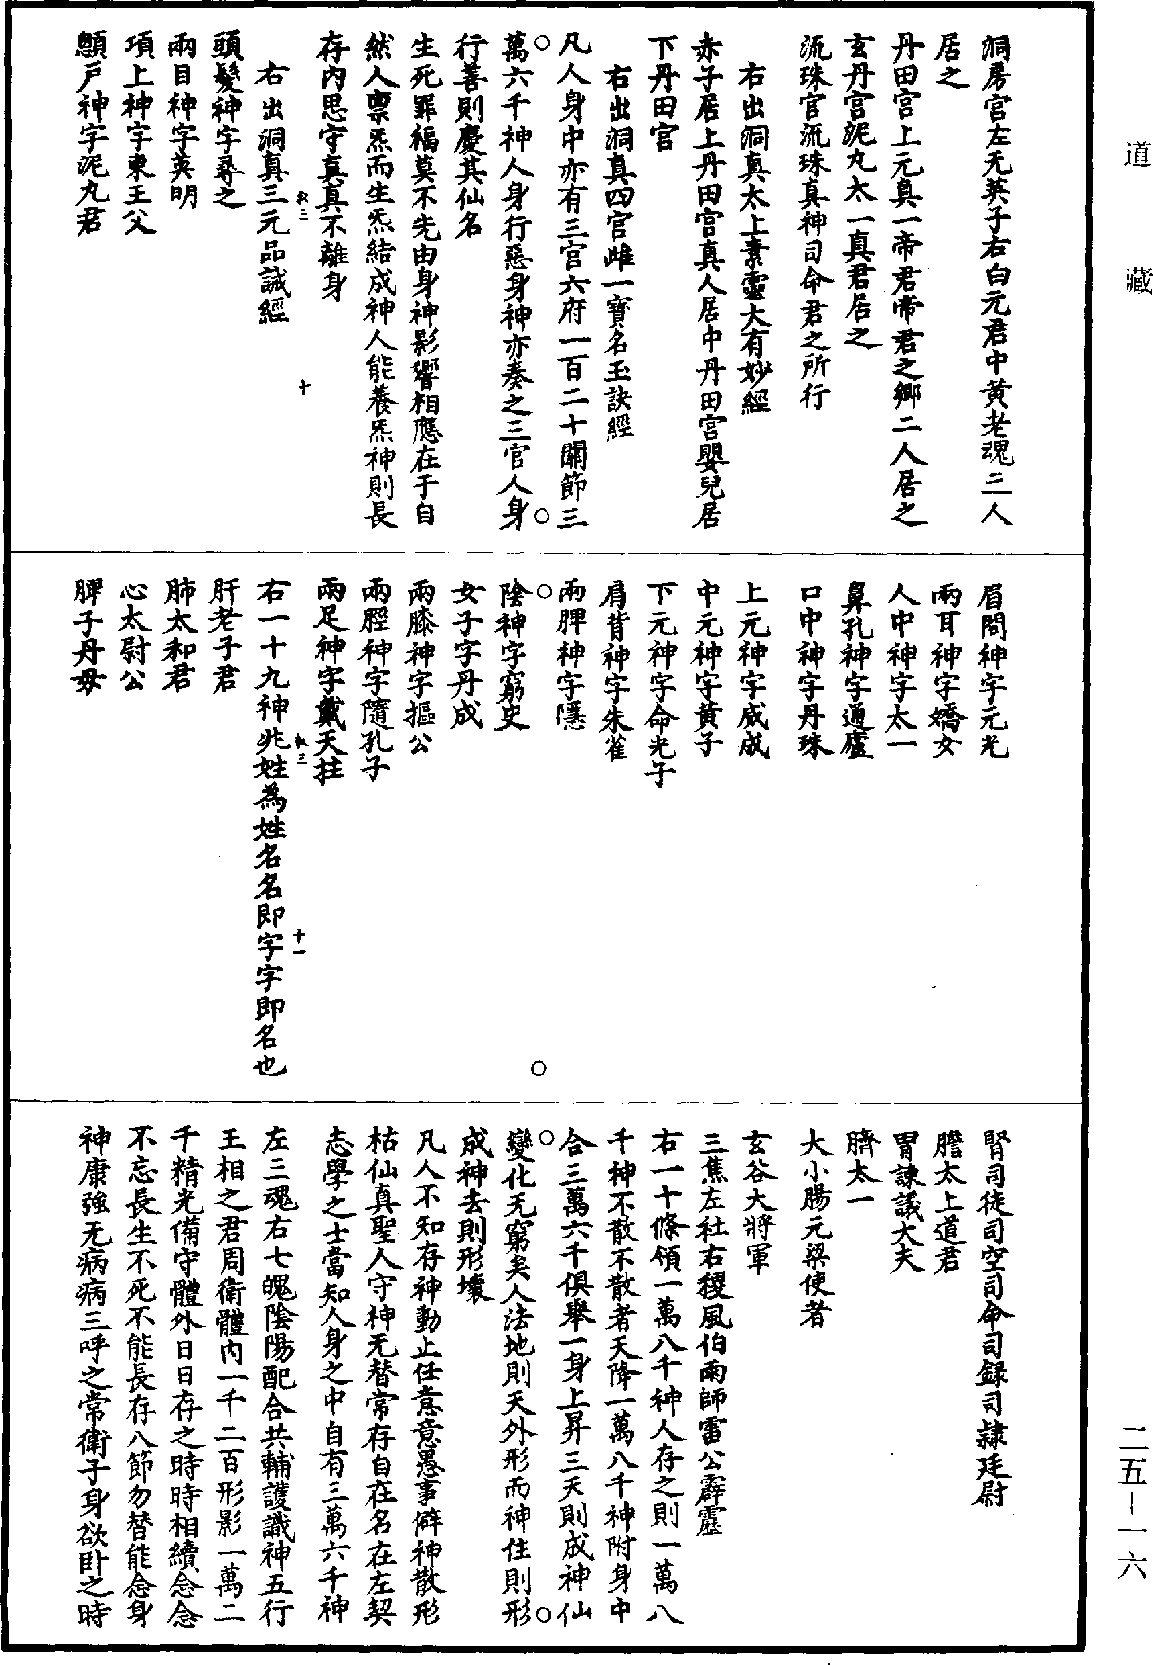 道藏
洞房宮左无英子右白元君中黄老魂三人
居之
丹田宮上元真一帝君帝君之卿二人居之
玄丹宮泥丸太一真君居之
流珠宮流珠真神司命君之所行
右出洞真太上素靈大有妙經
赤子居上丹田宮真人居中丹田宮嬰兒居
下丹田宮
右出洞真四宮雌一寶名玉訣經
凡人身中亦有三宮六府一百二十關節三
萬六千神人身行惡身神亦奏之三官人身
行善則慶其仙名
生死罪福莫不先由身神影響相應在于自
然人稟炁而生炁結成神人能養炁神則長
存內思守真真不離身
右出洞真三元品誡經
十
頭髮神字尋之
兩目神字英明
項上神字東王父
顖戶神字泥丸君
眉間神字元光
兩耳神字嬌女
人中神字太一
鼻孔神字通廬
口中神字丹珠
上元神字威成
中元神字黃子
下元神字命光子
肩背神字朱雀
兩脾神字隱
陰神字窮史
女子字丹成
兩膝神字摳公
兩脛神字隨孔子
兩足神字戴天拄
右一十九神兆姓為姓名名即字字即名也
十一
肝老子君
肺太和君
心太尉公
脾子丹母
腎司徒司空司命司錄司隸廷尉
膽太上道君
胃諫議大夫
臍太一
大小腸元梁使者
玄谷大將軍
三焦左社右稷風伯雨師雷公霹靂
右一十條領一萬八千神人存之則一萬八
千神不散不散者天降一萬八千神附身中
合三萬六千俱舉一身上昇三天則成神仙
變化无窮矣人法地則天外形而神住則形
成神去則形壞
凡人不知存神動止任意意愚事僻神散形
枯仙真聖人守神无替常存自在名在左契
志學之士當知人身之中自有三萬六千神
左三魂右七魄陰陽配合共輔護識神五行
王相之君周衛體內一千二百形影一萬二
千精光備守體外日日存之時時相續念念
不忘長生不死不能長存八節勿替能念身
神康強无病病三呼之常衛子身欲卧之時
二五-一六